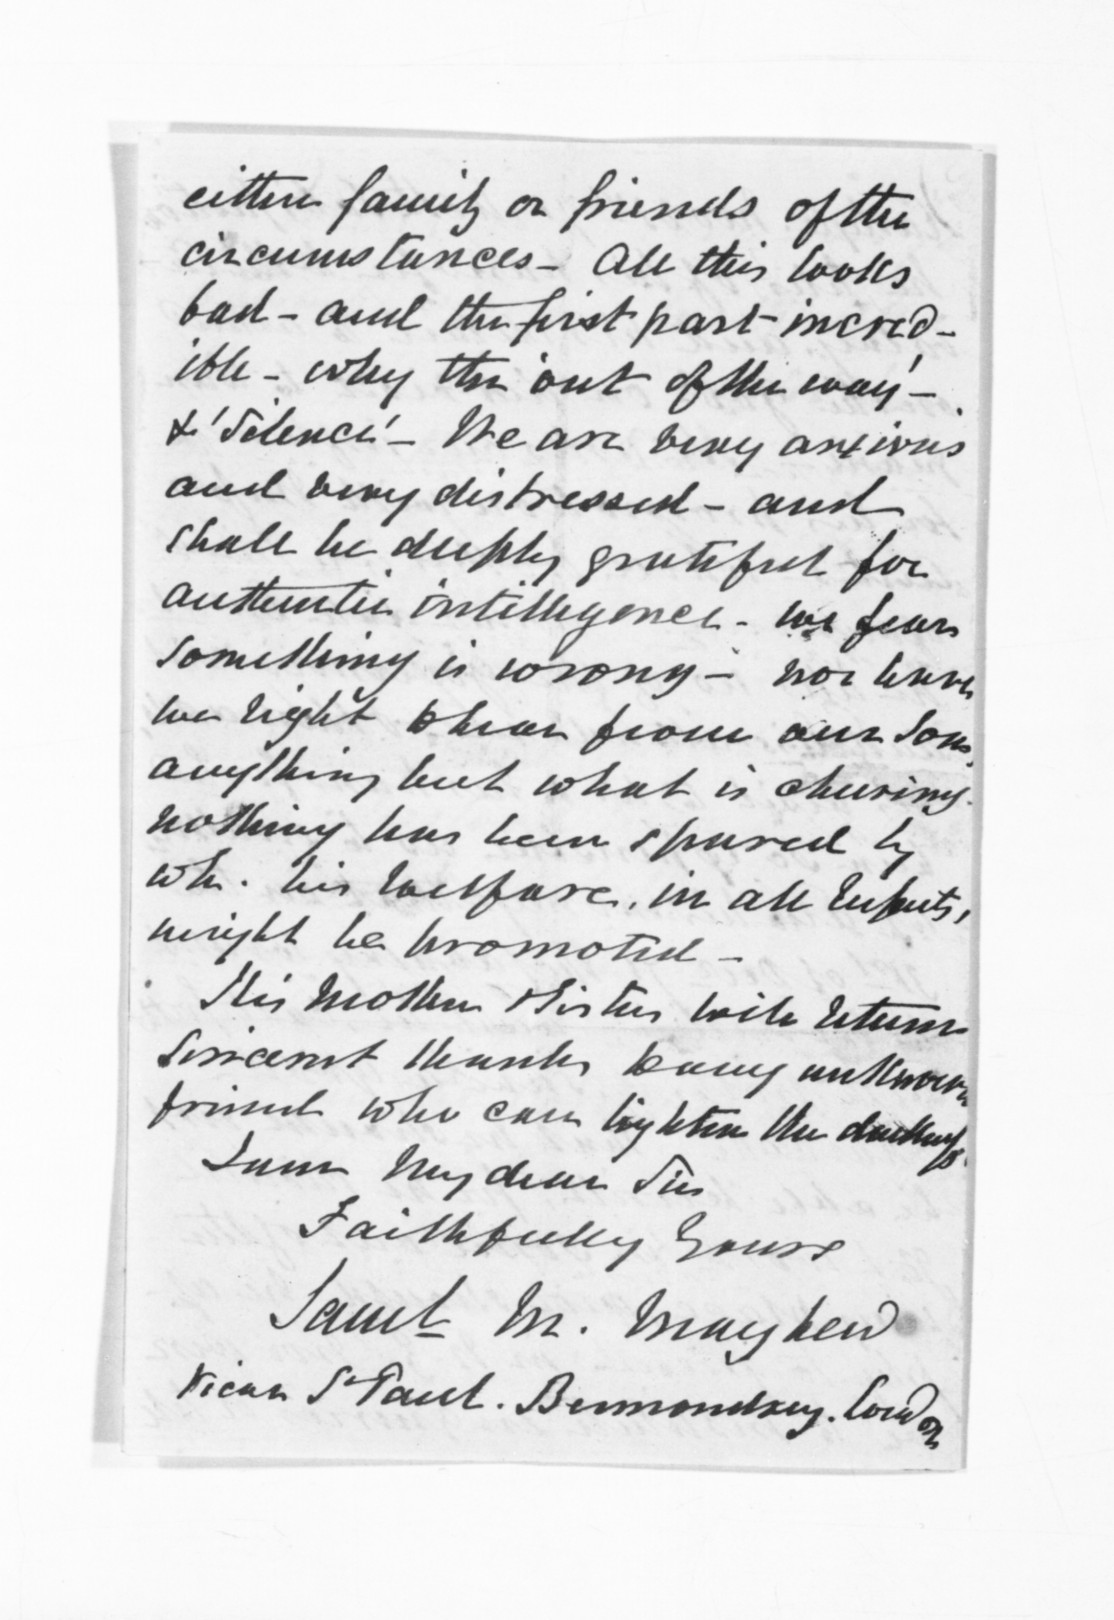 either family or friends of the
circumstances - All this looks
bad - and the first part incred-
ible - why the 'out of the way' -
& 'Silence' - We are very anxious
and very distressed - and
shall be deeply grateful for
authentic intelligence - we fear
something is wrong - nor have
we right to hear from our Son,
anything but what is cheering.
Nothing has been spared by
wh. his welfare, in all respects,
might be promoted -
His Mother & Sister will return
sincerest thanks to any unknown
friend who can lighten the darkness.
I am My dear Sir
Faithfully Yours
Saml. M. Mayhew
Vicar St Paul. Bermondsey. London